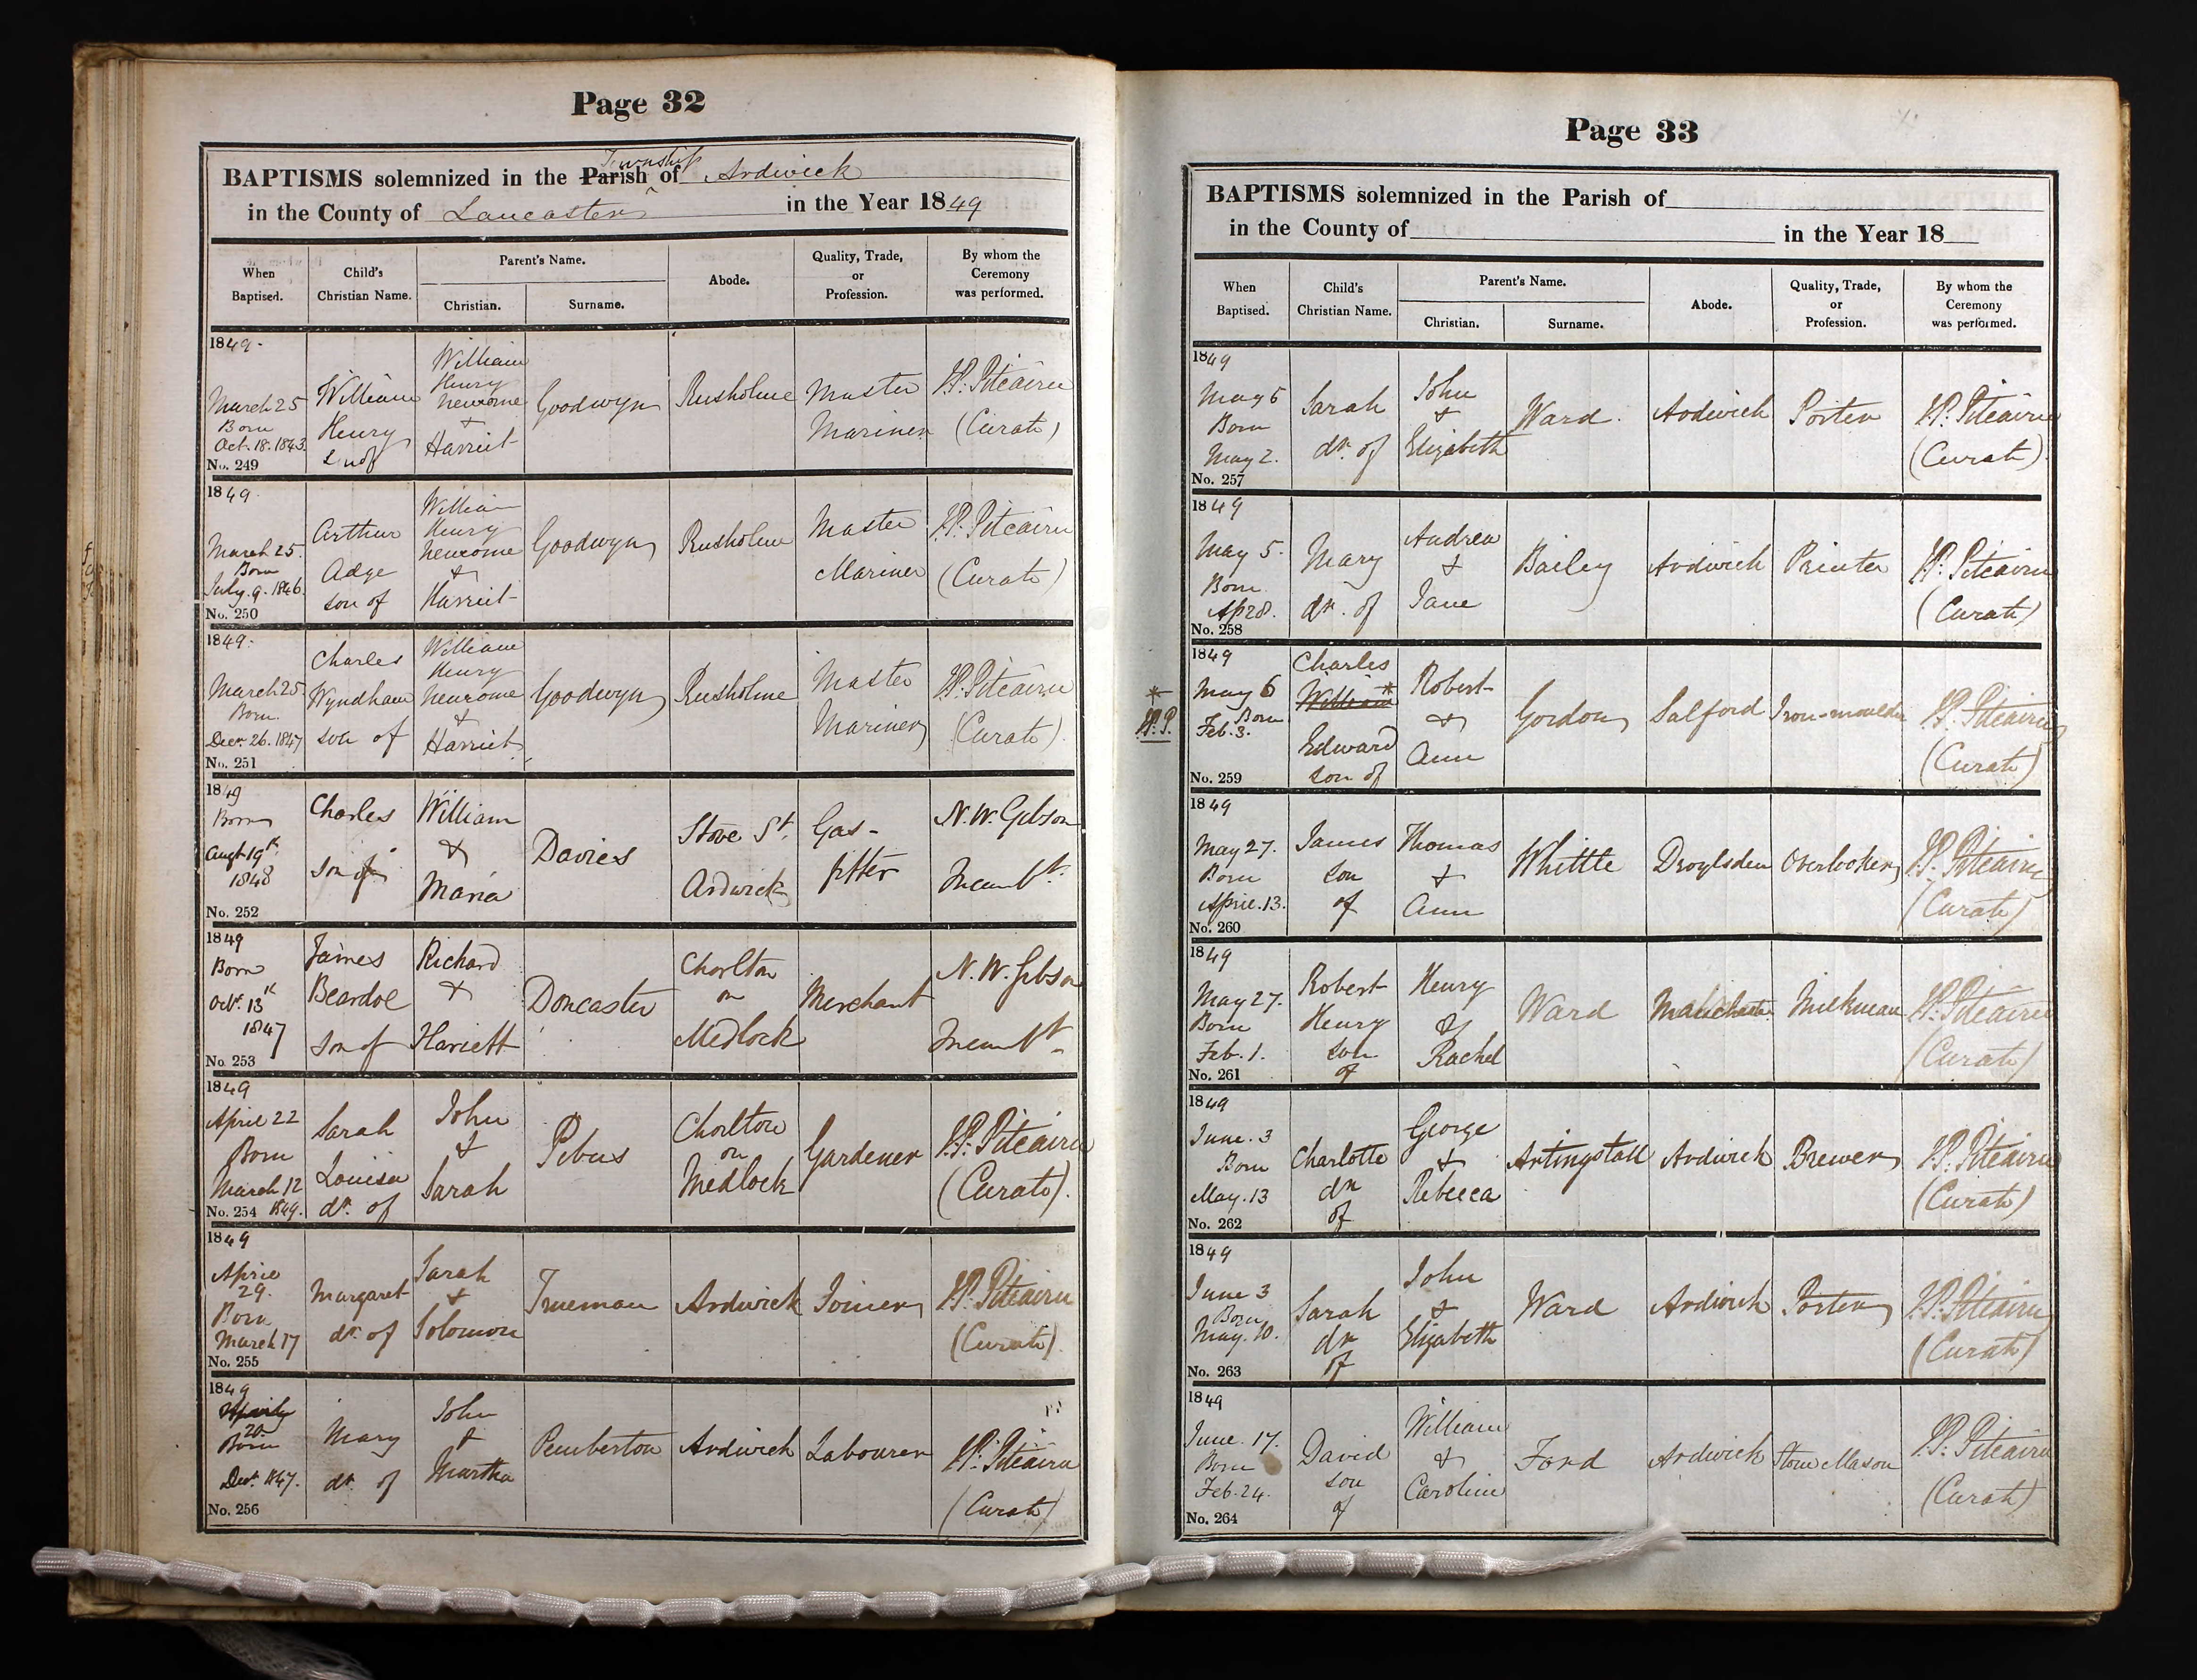 Page 32
BAPTISMS solemnized in the Parish of Township Ardwick
in the County of Lancaster in the Year 1849
When Baptised.
Child's Christian Name.
Parent's Name.
Christian.
Surname.
Abode.
Quality, Trade, or Profession.
By whom the Ceremony was performed.
1849.
March 25
Born
Oct. 18. 1843.
No. 249
William
Henry
son of
William
Henry
Newcome
+
Harriet
Goodwyn
Rusholme
Master
Mariner
P. Pitcairn
(Curate)
1849.
March 25.
Born
July. 9. 1846.
No. 250
Arthur
Adge
son of
William
Henry
Newcome
+
Harriet
Goodwyn
Rusholme
Master
Mariner
P. Pitcairn
(Curate)
1849.
March 25.
Born.
Decr. 26. 1847
No. 251
Charles
Wyndham
son of
William
Henry
Newcome
+
Harriet
Goodwyn
Rusholme
Master
Mariner
P. Pitcairn
(Curate).
1849
Born
Augt 19th
1848
No. 252
Charles
son of
William
&
Maria
Davies
Stove St.
Ardwick
Gas-
fitter
N. W. Gibson
Incumbt.
1849
Born
Octr. 13th
1847
No. 253
James
Beardoe
son of
Richard
&
Hariett
Doncaster
Chorlton
on
Medlock
Merchant
N. W. Gibson
Incumbt.
1849
April 22
Born
March 12
No. 254 1849.
Sarah
Louisa
dr. of
John
+
Sarah
Pebus
Chorlton
on
Medlock
Gardener
P. Pitcairn
(Curate).
1849
April
29.
Born
March 17
No. 255
Margaret
dr. of
Sarah
+
Solomon
Trueman
Ardwick
Joiner
P. Pitcairn
(Curate).
1849
20.
Born
Decr. 1847.
No. 256
Mary
dr. of
John
+
Martha
Pemberton
Ardwick
Labourer
P. Pitcairn
(Curate)
Page 33
BAPTISMS solemnized in the Parish of
in the County of in the Year 18
When Baptised.
Child's Christian Name.
Parent's Name.
Christian.
Surname.
Abode.
Quality, Trade, or Profession.
By whom the Ceremony was performed.
1849
May 6
Born
May 2.
No. 257
Sarah
dr. of
John
+
Elizabeth
Ward.
Ardwick
Porter
P. Pitcairn
(Curate).
1849
May 5.
Born
Ap 28.
No. 258
Mary
dr. of
Andrew
+
Jane
Bailey
Ardwick
Printer
P. Pitcairn
(Curate)
*
P. P.
1849
May 6
Born
Feb. 3.
No. 259
Charles
William *
Edward
son of
Robert
&
Ann
Gordon
Salford
Iron-moulder
P. Pitcairn
(Curate)
1849
May 27.
Born
April. 13.
No. 260
James
son
of
Thomas
+
Ann
Whittle
Droylsden
Overlooker
P. Pitcairn
(Curate)
1849
May 27.
Born
Feb. 1.
No. 261
Robert
Henry
son
of
Henry
&
Rachel
Ward
Manchester.
Milkman
P. Pitcairn
(Curate)
1849
June. 3
Born
May. 13
No. 262
Charlotte
dr
of
George
+
Rebecca
Artingstall
Ardwick
Brewer
P. Pitcairn
(Curate)
1849
June 3
Born
May. 10.
No. 263
Sarah
dr
of
John
+
Elizabeth
Ward
Ardwick
Porter
P. Pitcairn
(Curate)
1849
June. 17.
Born
Feb. 24.
No. 264
David
son
of
William
&
Caroline
Ford
Ardwick
Stone Mason
P. Pitcairn
(Curate)